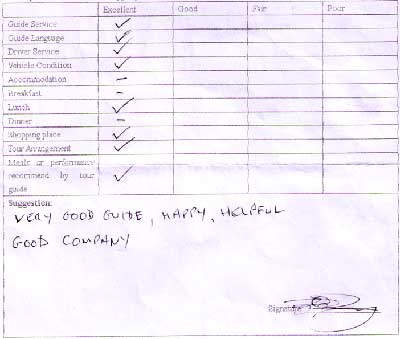 Excellent Good Fair Poor
Guide Service ✓
Guide Language ✓
Driver Service ✓
Vehicle Condition ✓
Accommodation –
Breakfast –
Lunch ✓
Dinner –
Shopping place ✓
Tour Arrangement ✓
Meals or performance
recommend by tour ✓
guide
Suggestion:
VERY GOOD GUIDE, HAPPY, HELPFUL
GOOD COMPANY
Signature